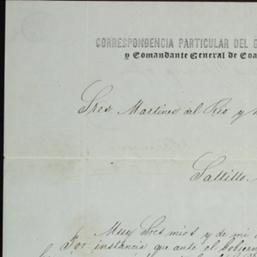 CORRESPONDENCIA PARTICULAR DEL G
y Comandante General de Coa
Sres Martinez del Rio y
Saltillo.
Muy Sres mios y de mi
Por instancia que ante el Gobier